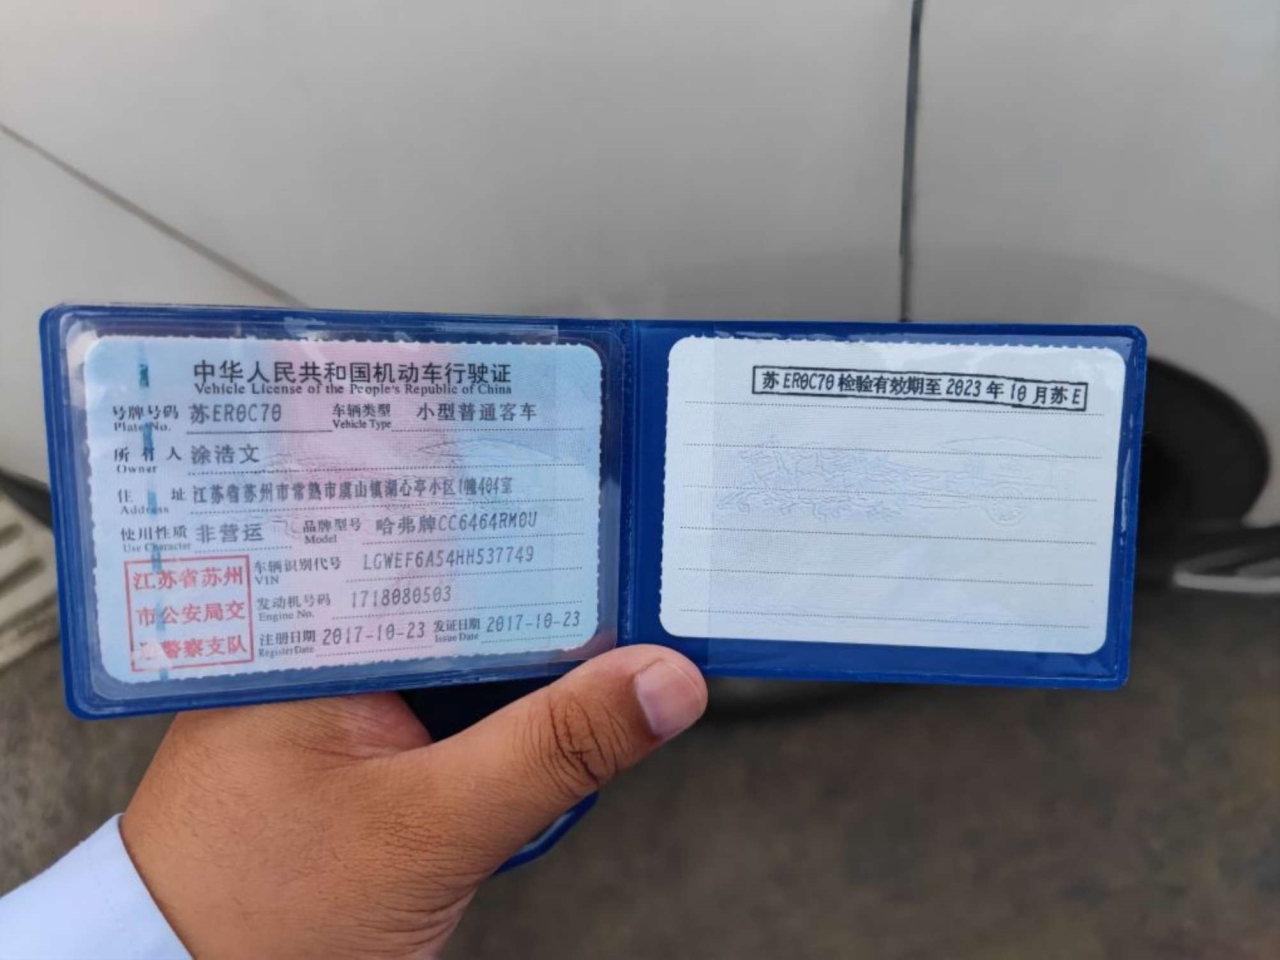 中华人民共和国机动车行驶证
Vehicle License of the People's Republic of China
号牌号码 苏ER0C70 车辆类型 小型普通客车
Plate No. Vehicle Type
所有人 涂浩文
Owner
住址 江苏省苏州市常熟市虞山镇湖心亭小区1幢404室
Address
使用性质 非营运 品牌型号 哈弗牌CC6464RM0U
Use Character Model
江苏省苏州
市公安局交
警察支队
车辆识别代号 LGWEF6A54HH537749
VIN
发动机号码 1718080503
Engine No.
注册日期 2017-10-23 发证日期 2017-10-23
Register Date Issue Date
苏ER0C70检验有效期至2023年10月苏E